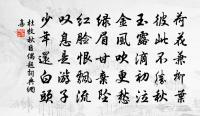 荷花兼柳葉
彼此不勝秋
玉露滴初泣
金風吹更愁
綠眉甘棄墜
紅臉恨飄流
叹息是游子
少年還白頭
杜牧秋日偶題詞典網
集